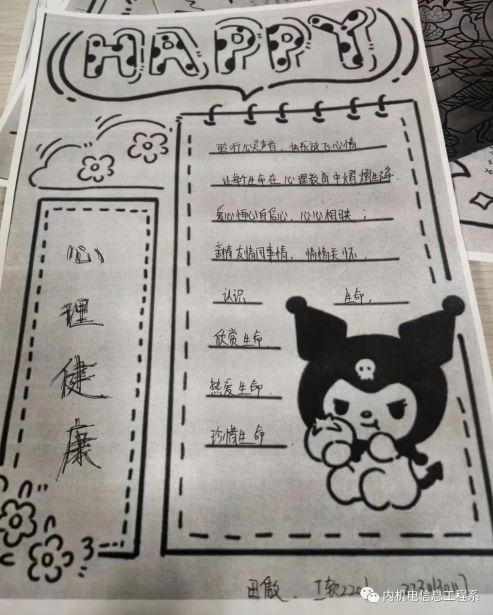 HAPPY
心理健康
聆听心灵声音，快乐放飞心情
让每个生命在心理教育中熠熠生辉.
爱心恒心自信心，心心相映；
亲情友情同事情，情情关怀.
认识 生命.
欣赏生命
热爱生命.
珍惜生命.
田傲.
内机电信息工程系